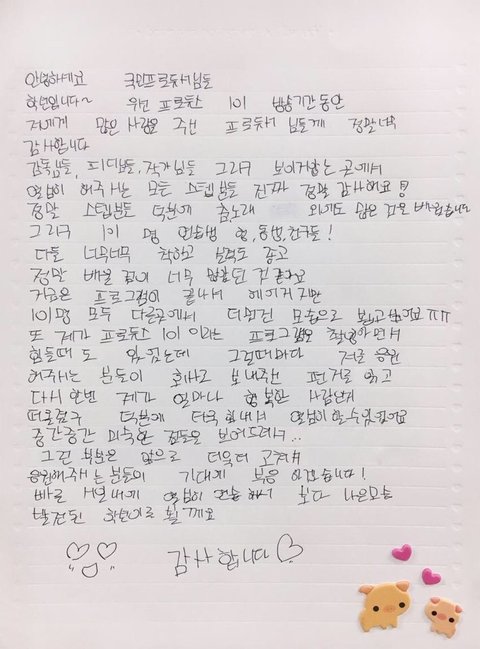 안녕하세요 국민프로듀서님들
학년입니다~ 우선 프로듀스 101 방송기간동안
저에게 많은 사랑을 주신 프로듀서 님들께 정말너무
감사합니다
감독님들, 피디님들, 작가님들 그리구 보이지않는 곳에서
열심히 해주시는 모든 스텝분들 진짜 정말 감사해요!
정말 스텝분들 덕분에 춤,노래 외에도 많은 것을 배웠습니다
그리구 101 명 연습생 형,동생,친구들!
다들 너무너무 착하고 실력도 좋고
정말 배울 점이 너무 많았던 것 같아요
지금은 프로그램이 끝나서 헤어지지만
101명 모두 다른곳에서 더멋진 모습으로 보고싶어요 ㅠㅠ
또 제가 프로듀스 101 이라는 프로그램을 촬영하면서
힘들때 도 있었는데 그럴때마다 저를 응원
해주시는 분들이 회사로 보내주신 편지를 읽고
다시한번 제가 얼마나 행복한 사람인지
떠올렸구 덕분에 더욱 힘내서 열심히할수있었어요
중간중간 미숙한 점들을 보여드려서..
그런 부분은 앞으로 더욱더 고쳐서
응원해주시는분들의 기대에 보응 하겠습니다!
빠른 시일내에 열심히 연습 해서 보다 나은모습
발전된 학년이로 뵐께요
감사합니다